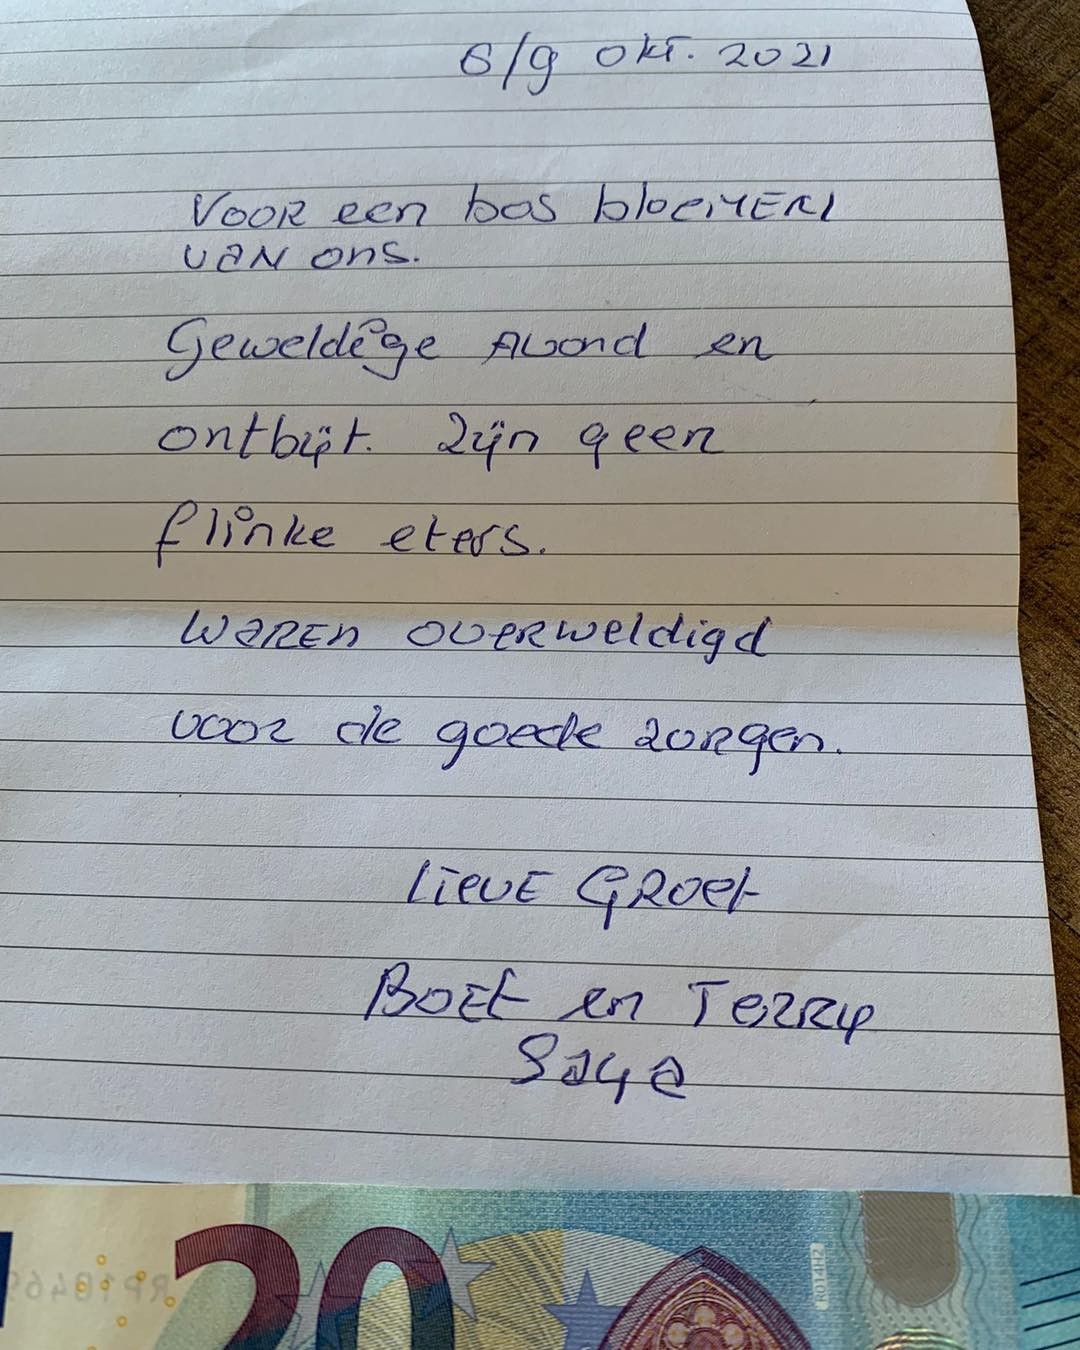 6/9 okt. 2021
Voor een bos bloemen
van ons.
Geweldige Avond en
ontbijt. Zijn geen
flinke eters.
Waren overweldigd
voor de goede zorgen.
Lieve Groet
Boet en Terry
Saya
20
R014H2